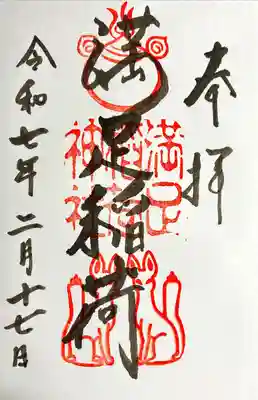 奉拝
満足稲荷
満足稲荷神社
令和七年二月十七日